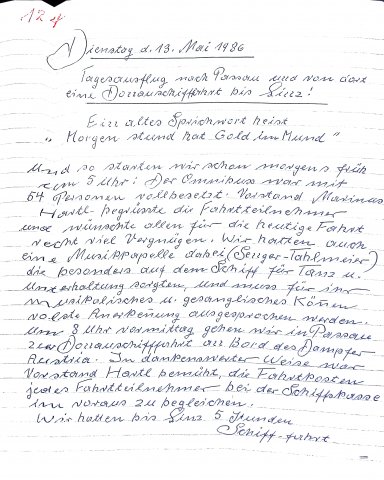 12
Dienstag d. 13. Mai 1986
Tagesausflug nach Passau und von dort
eine Donauschiffahrt bis Linz!
Ein altes Sprichwort heist
"Morgen stund hat Gold im Mund"
Und so starten wir schon morgens früh
um 5 Uhr! Der Omnibus war mit
54 Personen vollbesetzt. Vorstand Marinus
Hartl begrüsste die Fahrtteilnehmer
und wünschte allen für die heutige Fahrt
recht viel Vergnügen. Wir hatten auch
eine Musikkapelle dabei (Senger-Tahlmeier)
die besonders auf dem Schiff für Tanz u.
Unterhaltung sorgten, und muss für ihr
musikalisches u. gesanglisches Können
vollste Anerkenung ausgesprochen werden.
Um 8 Uhr vormittag gehen wir in Passau
zur Donauschiffahrt an Bord des Dampfer
Austria. In dankenswerter Weise war
Vorstand Hartl bemüht, die Fahrtkosten
jedes Fahrtteilnehmer bei der Schiffskasse
im voraus zu begleichen.
Wir hatten bis Linz 5 Stunden
Schiff-fahrt